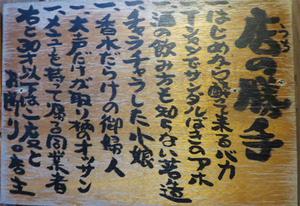 店の勝手
一はじめから酔って来るバカ
一Tシャツでサンダルばきのアホ
一酒の飲み方も知らない若造
一チャラチャラした小娘
一香水だらけの御婦人
一大声だけが取り柄オッサン
一メニューを持って帰る同業者
右と30才以下は一度と
お断り 店主